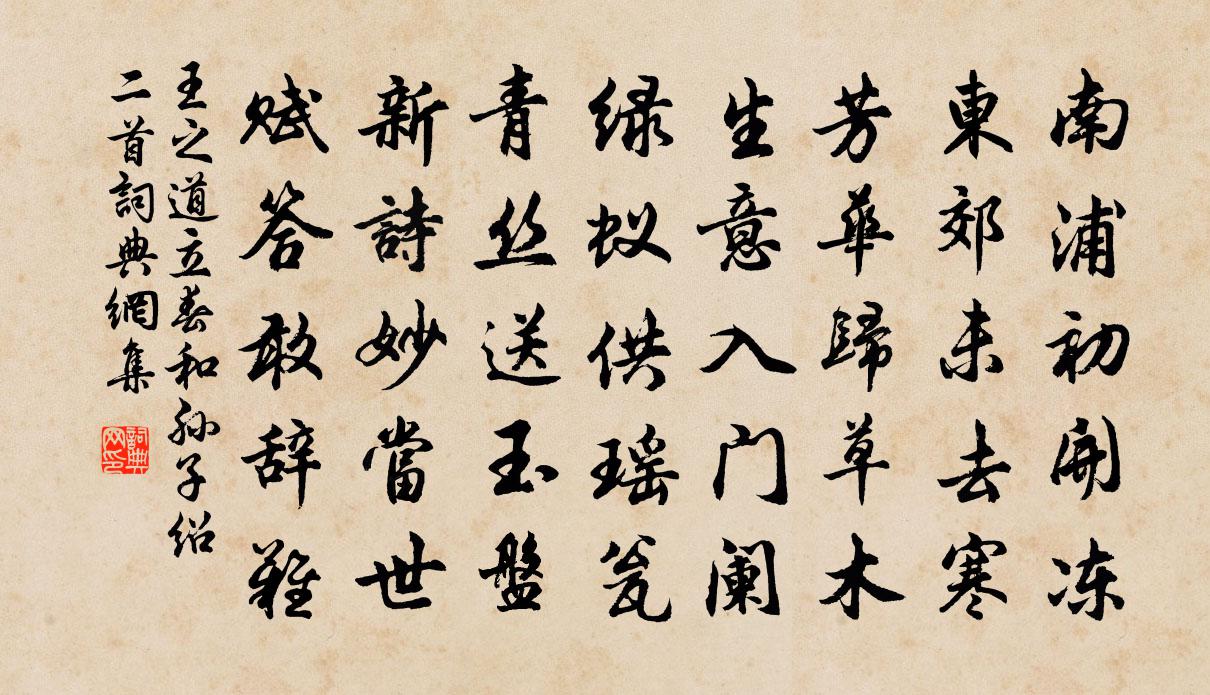 南浦初開冻
東郊未去寒
芳華歸草木
生意入门阑
绿蚁供瑶瓮
青丝送玉盤
新詩妙當世
赋答敢辞難
王之道立春和孙子绍
二首詞典網集
詞典
网印